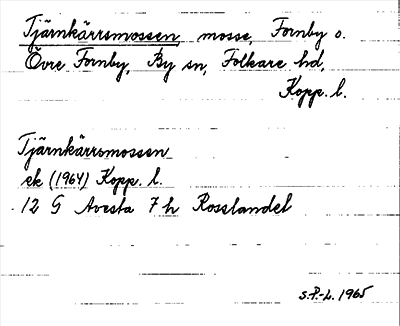 Tjärnkärrsmossen, mosse, Fornby o.
Övre Fornby, By sn, Folkare hd,
Kopp. l.
Tjärnkärrsmossen
ek (1964) Kopp. l.
12 G Avesta 7 h Rosslandel
S.P.-L. 1965